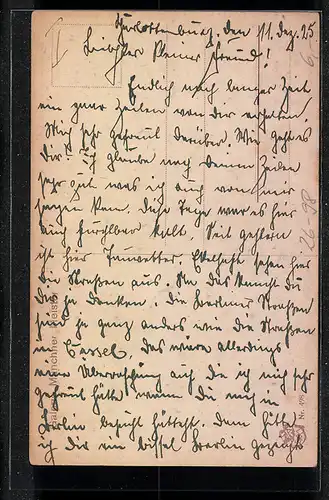 Charlottenburg, den 11. Dez. 25
Liebster kleiner Freund!
Endlich nach langer Zeit
ein paar Zeilen von dir erhalten.
Mich sehr gefreut darüber. Wie geht es
Dir? Ich glaube nach deinen Zeilen
sehr gut was ich auch von mir
sagen kann. Diese Tage war es hier
auch furchtbar kalt. Seit gestern
ist hier Tauwetter. Ekelhaft sehen hier
die Strassen aus. Na das kannst du
Dir ja denken, die Berliner Strassen
sind ja ganz anders wie die Strassen
in Cassel. Das wäre allerdings
eine Überraschung auf die ich mich sehr
gefreut hätte wenn du mich in
Berlin besucht hättest. Dann hätte
ich dir ein bissel Berlin gezeigt
Münchner
Nr.
26 98